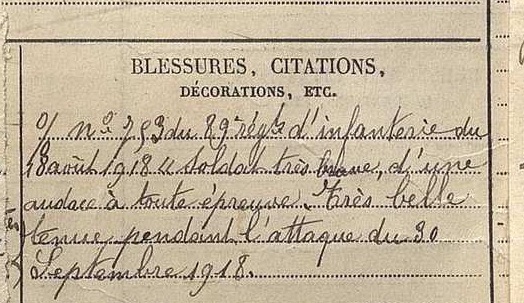 BLESSURES, CITATIONS,
DÉCORATIONS, ETC.
O/ n° 793 du 89e régt d'infanterie du
18 août 1918 "Soldat très brave, d'une
audace à toute épreuve. Très belle
tenue pendant l'attaque du 30
Septembre 1918.